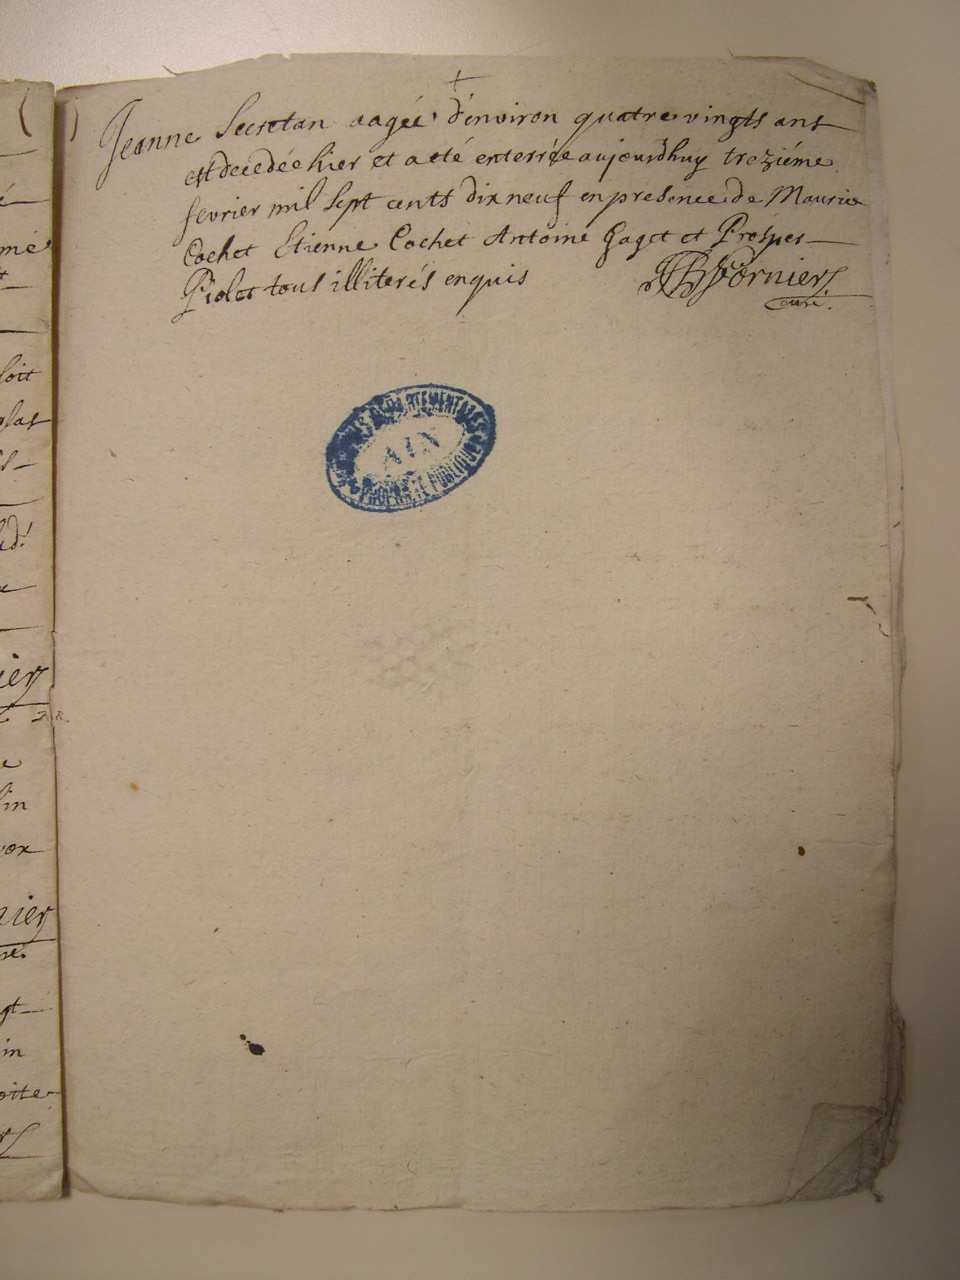 Jeanne Secretan aagée d'environ quatre vingts ans
est decedée hier et a eté enterrée aujourdhuy treziéme
fevrier mil sept cents dix neuf en presence de Maurice
Cochet Etienne Cochet Antoine Gaget et Prosper
Piolet tous illiterés enquis
Fornier
curé.
ARCHIVES DÉPARTEMENTALES
AIN
PROPRIÉTÉ PUBLIQUE
mé
soit
plat
in
ier